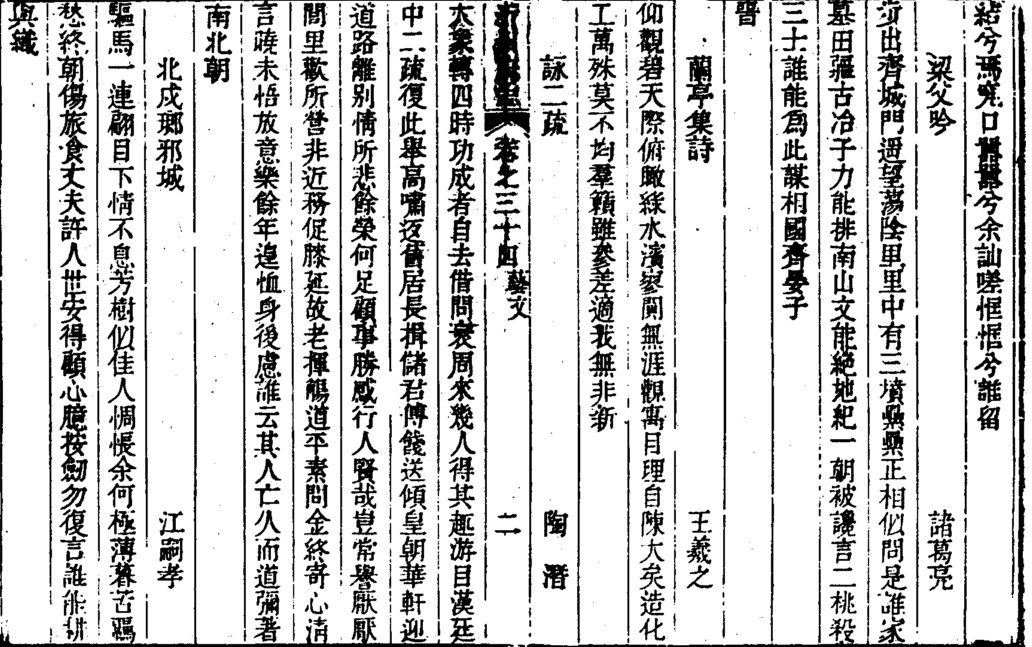 結兮焉究口囂囂兮余訕嗟恇恇兮誰留
梁父吟 諸葛亮
步出齊城門遥望蕩陰里里中有三墳纍纍正相似問是誰家
墓田疆古冶子力能排南山文能絶地紀一朝被讒言二桃殺
三士誰能為此謀相國齊晏子
晉
蘭亭集詩 王羲之
仰觀碧天際俯瞰綠水濱寥闃無涯觀寓目理自陳大矣造化
工萬殊莫不均羣籟雖參差適我無非新
詠二疏 陶潛
卷之三十四 藝文 二
大象轉四時功成者自去借問衰周來幾人得其趣游目漢廷
中二疏復此舉高嘯返舊居長揖儲君傅餞送傾皇朝華軒迎
道路離别情所悲餘榮何足顧事勝感行人賢哉豈常譽厭厭
閭里歡所營非近務促膝延故老揮觴道平素問金終寄心清
言曉未悟放意樂餘年遑恤身後慮誰云其人亡久而道彌著
南北朝
北戍瑯邪城 江嗣孝
驅馬一連翩目下情不息芳樹似佳人惆悵余何極薄暮苦羈
愁終朝傷旅食丈夫許人世安得顧心臆按劒勿復言誰能耕
與織